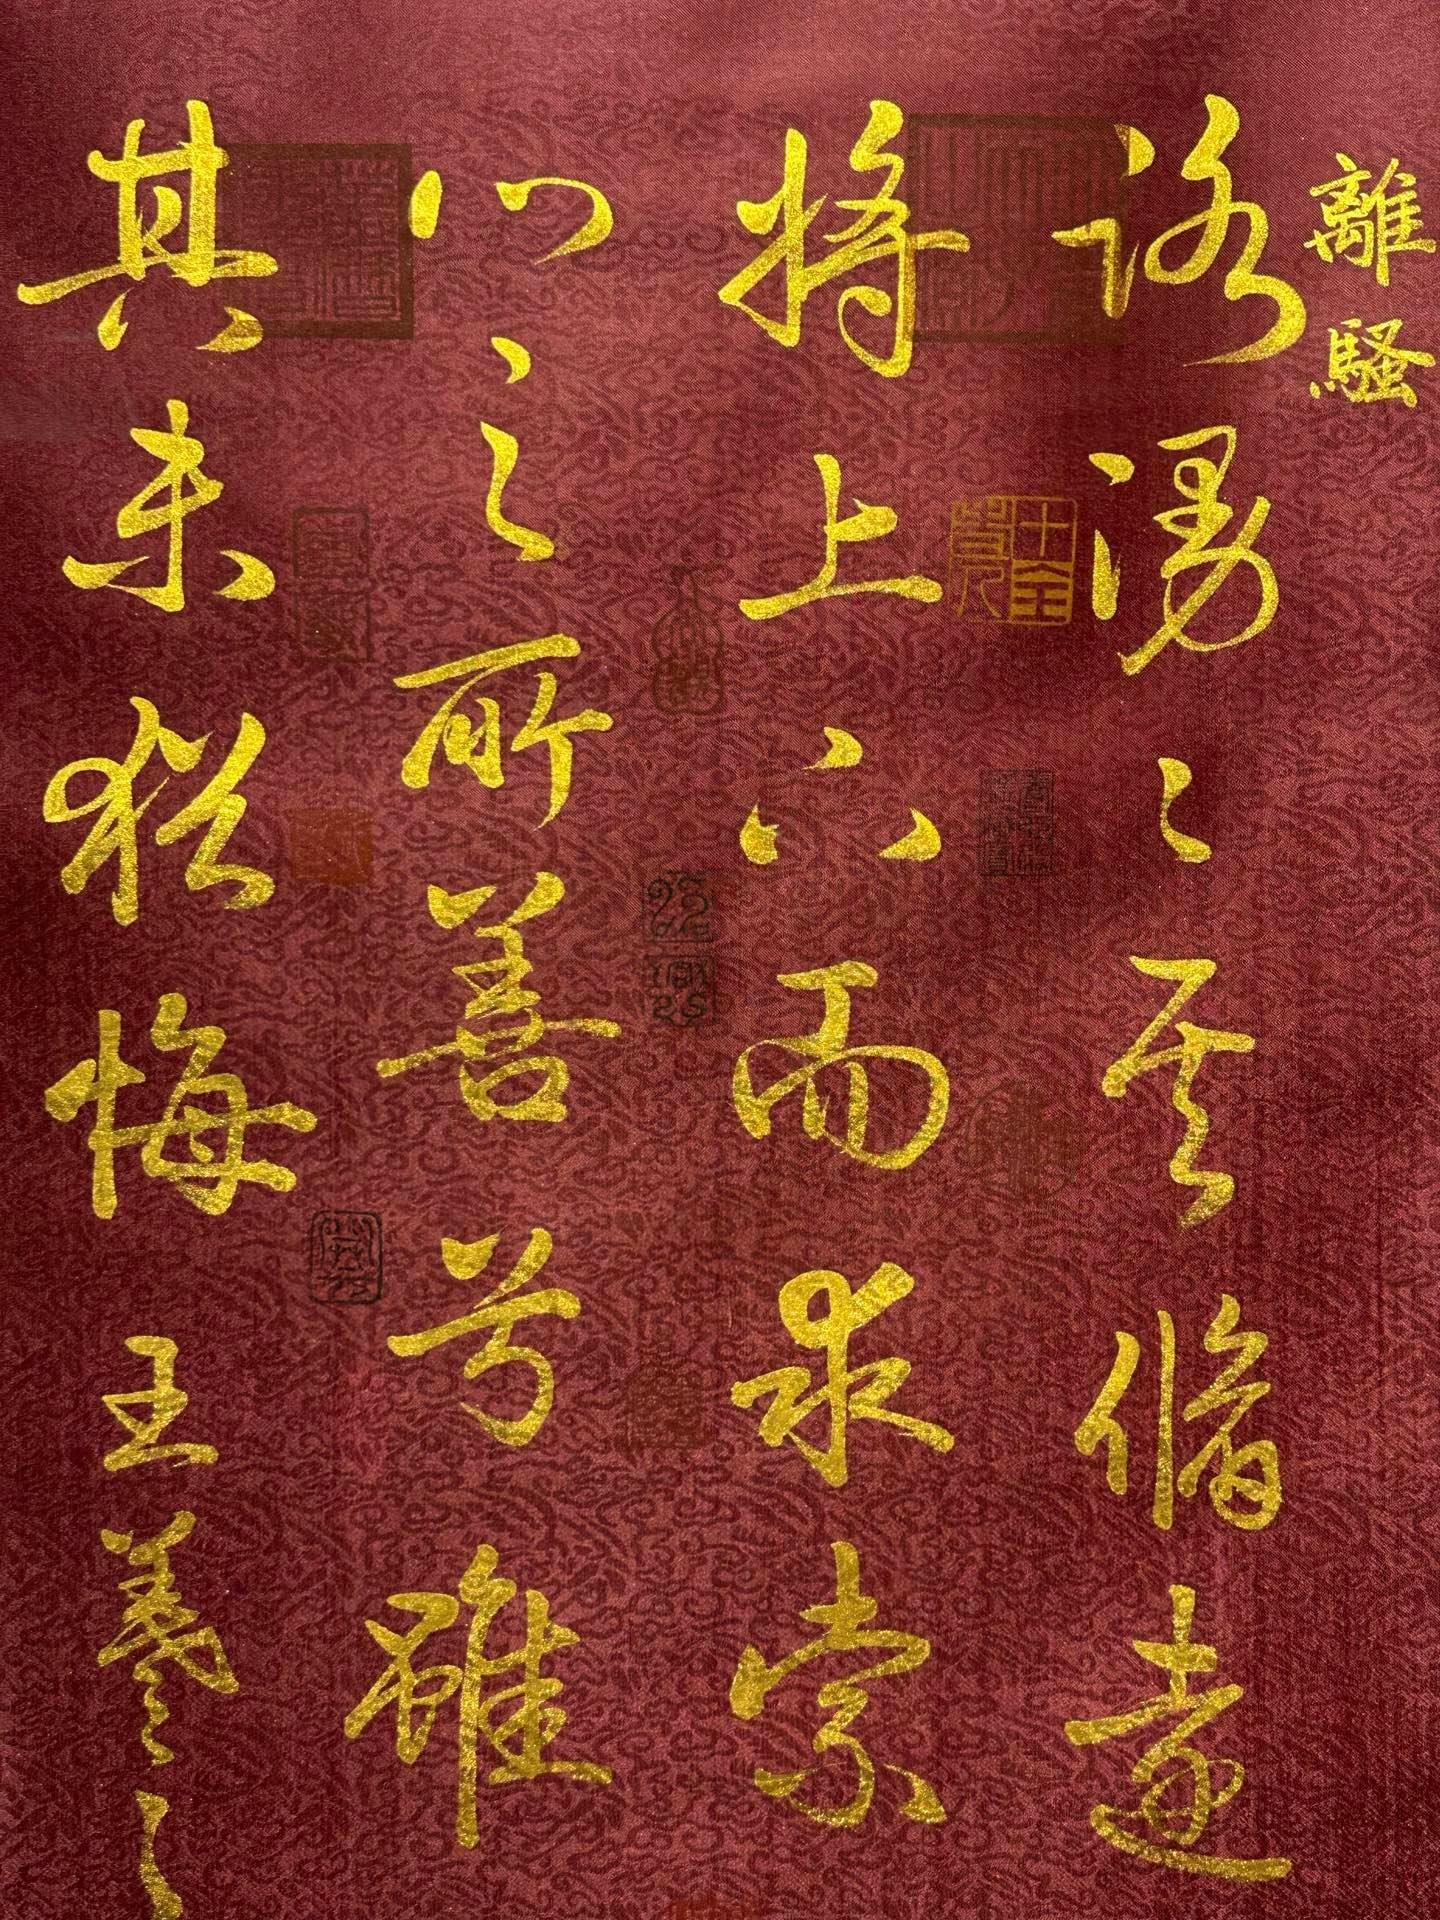 離騷
路漫〻其脩遠
將上下而求索
心之所善兮雖
其未猶悔 王羲之
十全